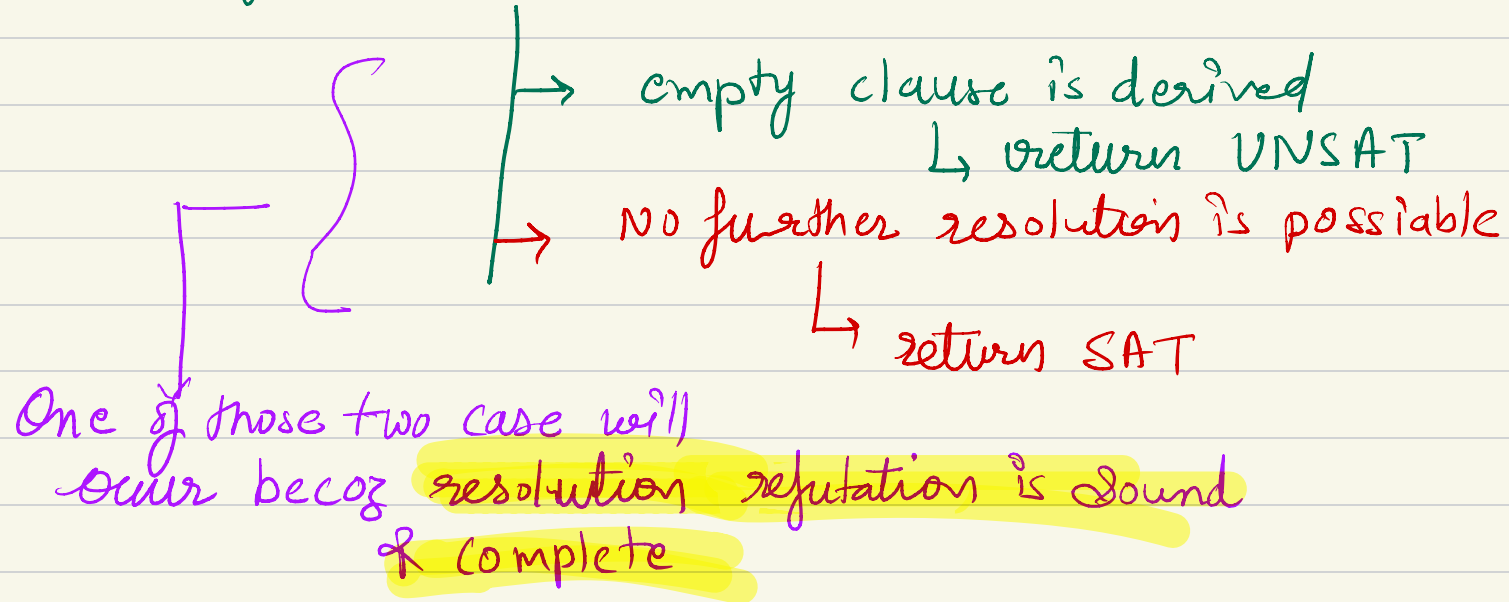 empty clause is derived
return UNSAT
No further resolution is possiable
return SAT
One of those two case will
occur becoz resolution refutation is sound
& complete